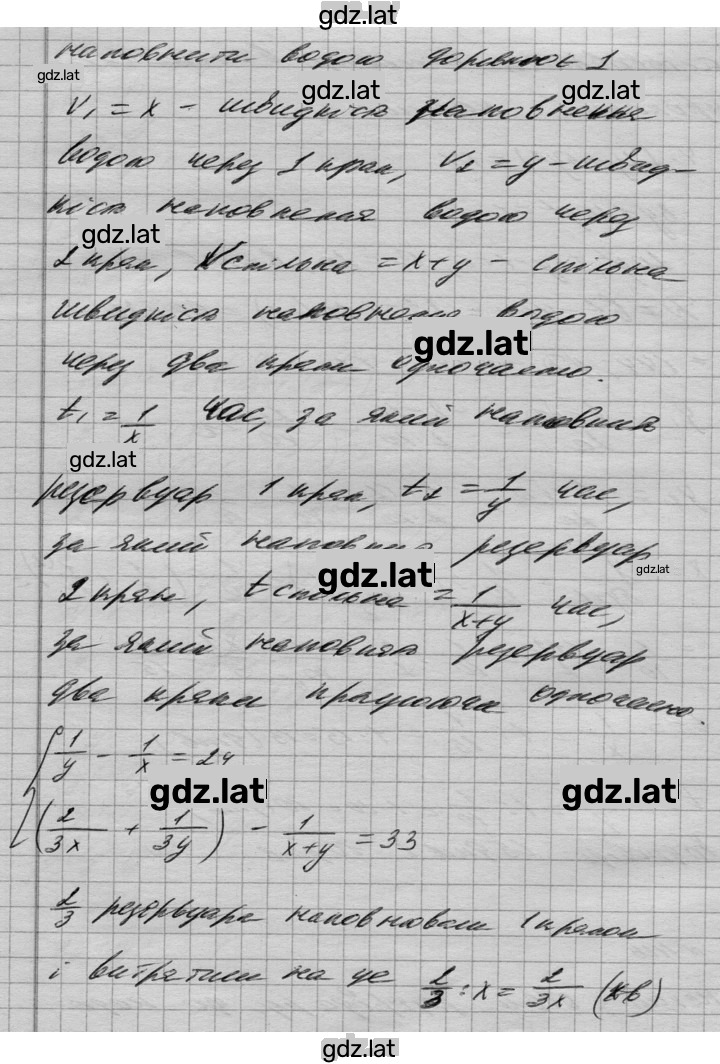 gdz.latt
наповнити водою дорівнює 1
gdz.lat
gdz.lat
gdz.lat
V₁ = x – швидкість наповнення
водою через 1 кран, V₂ = y – швид-
кість наповнення водою через
gdz.lat
2 кран, Vспільна = x+y – спільна
швидкість наповнення водою
gdz.lat
через два крани одночасно.
t₁ = 1/x час, за який наповнить
gdz.lat
резервуар 1 кран, t₂ = 1/y час,
за який наповнить резервуар
gdz.lat
gdz.lat
2 кран, tспільна = 1/(x+y) час,
за який наповнять резервуар
два крани працюючи одночасно.
{ 1/y – 1/x = 24
gdz.lat
gdz.lat
(2/3x + 1/3y) – 1/(x+y) = 33
2/3 резервуара наповнювали 1 краном
і витратили на це 2/3 : x = 2/3x (хв)
gdz.lat